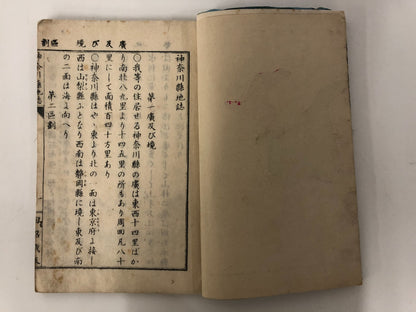 神奈川縣地誌
第一廣及び境
〇我等の住居せる神奈川縣の廣は東西十四里ばか
り南北八九里より十四五里の所もあり周回凡八十
里にして面積百四十方里あり
〇神奈川縣は や 東より北の 面は東京府よ接し
西は山梨縣 となり西南は静岡縣に境し東及び南
の二面は海よ向へり
第二區劃
廣及び境
區劃
神奈川縣地誌